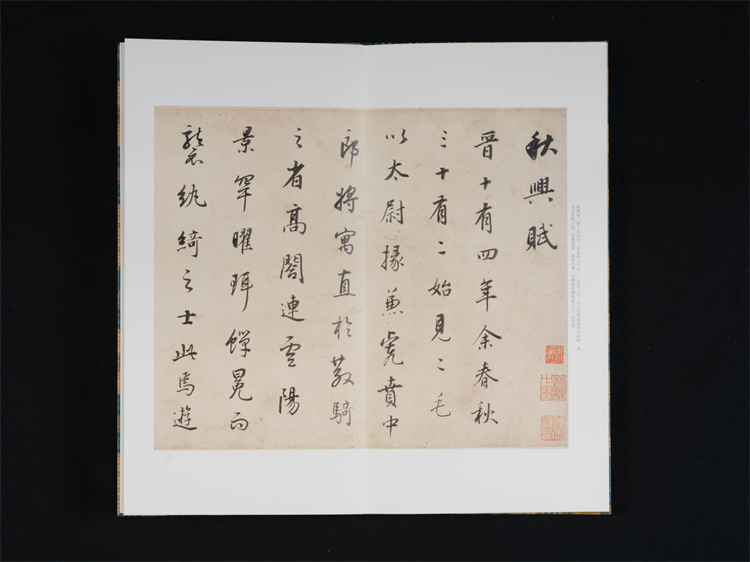 秋興賦
晉十有四年余春秋
三十有二始見二毛
以太尉掾兼虎賁中
郎將寓直於散騎
之省高閣連雲陽
景罕曜珥蟬冕而
襲紈綺之士此焉遊